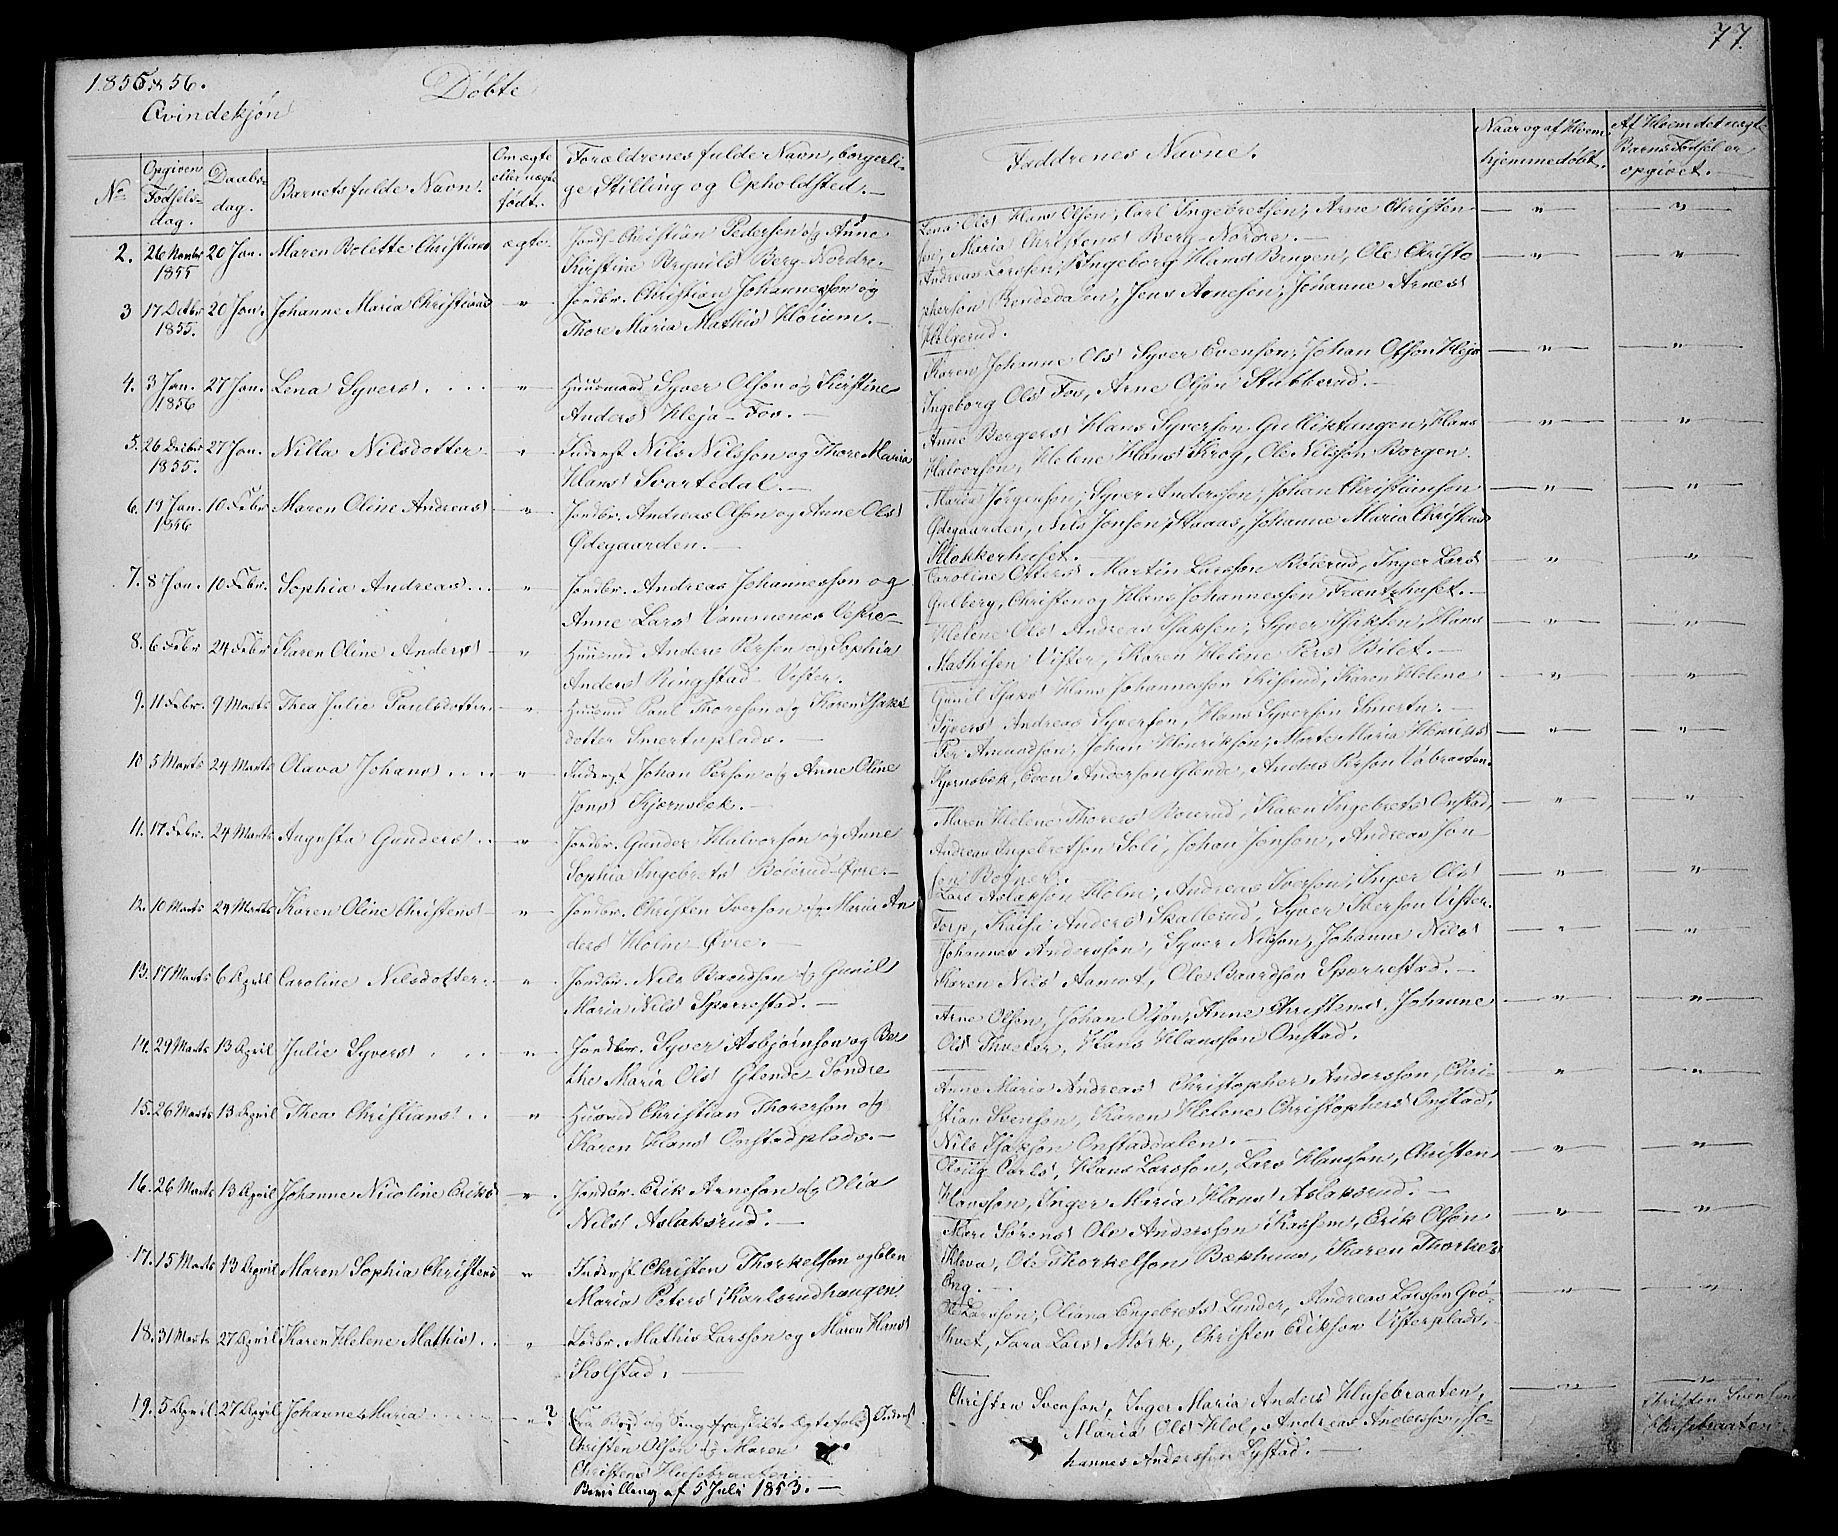 77.
1855 & 56.
Døbte
Qvindekjøn
No
Opgiven Fødsels-dag.
Daabs-dag.
Barnets fulde Navn.
Om ægte eller uægte født.
Forældrenes fulde Navn, borgerli-
ge Stilling og Opholdsted.
Faddrenes Navne.
Naar og af Hvem hjemmedøbt.
Af Hvem det uægte Barns Fødsel er opgivet.
2. 26 Novbr 1855 20 Jan. Maren Bolette Christians ægte. Jordb. Christian Pedersen og Anne
Kirstine Brynils Berg-Nordre.
Lena Ols Hans Olsen, Carl Ingebretsen, Arne Christen
sen, Maria Christens Berg-Nordre.
3 17 Decbr 1855. 20 Jan. Johanne Maria Christians " Jordbr. Christian Johannessen og
Thore Maria Mathis Høium.
Andreas Larssen, Ingeborg Hans Bengen, Ole Christo
phersen Bendedalen, Jens Arnesen, Johanne Arnes
Helgerud.
4. 3 Jan. 1856 27 Jan. Lena Syvers. " Huusmand Syver Olsen og Kirstine
Anders Hleja-Fos.
Karen Johanne Ols Syver Evensen, Johan Olsen Hleja
Ingeborg Ols Fos, Arne Olsen Stubberud.
5. 26 Decbr 1855. 27 Jan. Nilla Nilsdotter " Inderst Nils Nilsson og Thore Maria
Hans Svartedal.
Anne Bergers Hans Syversen Gulliktangen, Hans
Halvorsen, Helene Hans Krog, Ole Nilsson Borgen.
6. 19 Jan. 1856 10 Febr Maren Oline Andreas " Jordbr. Andreas Olsen og Anne Ols
Ødegaarden.
Maria Jørgensen, Syver Anderssen, Johan Christiansen
Ødegaarden, Nils Jonsen Staaas, Johanne Maria Christens
Klokkerhuset.
7. 8 Jan. 10 Febr. Sophia Andreas " Jordbr. Andreas Johannessen og
Anne Lars Vammenes Vestre
Caroline Otters Martin Larssen Røierud, Inger Lars
Gulberg, Christen og Hans Johannessen Frantzhuset.
8. 6 Febr 24 Febr Karen Oline Anders " Huusmd Anders Persen og Sophia
Anders Ringstad Vister.
Helene Ols Andreas Isaksen, Syver Isaksen, Hans
Mathisen Vister, Karen Helene Pers Bilet.
9. 11 Febr. 9 Marts Thea Julie Paulsdotter " Huusmd Paul Thoresen og Karen Isaks
dotter Smertuplads.
Gunil Isaks Hans Johannessen Kiserud, Karen Helene
Syvers Andreas Syversen, Hans Syversen Smertu.
10 5 Marts 24 Marts Olava Johans " Inderst Johan Persen og Anne Oline
Jons Kjernsbek.
Per Amundsen, Johan Henriksen, Marte Maria Henriks
Kjernsbek, Even Andersen Glende, Anders Persen Vabraaten
11. 17 Febr. 24 Marts Augusta Gunders. " Jordbr. Gunder Halvorsen og Anne
Sophia Ingebrets Bøierud-Øvre.
Maren Helene Thores Bøierud, Karen Ingebrets Onstad,
Andreas Ingebretsen Soli, Johan Jonsen, Andreas Jon
sen Bogner.
12. 10 Marts 24 Marts Karen Oline Christens " Jordbr. Christen Iversen og Maria An
ders Holm-Øvre.
Lars Aslaksen Holm, Andreas Iversen, Inger Ols
Torp, Kaisa Anders Skallerud, Syver Iversen Vister.
13. 17 Marts 6 April Caroline Nilsdotter. " Jordbr. Nils Baardsen og Gunil
Maria Nils Sparrestad.
Johannes Anderssen, Syver Nilssen, Johanna Nils
Karen Nils Aamot, Ole Baardsen Sparrestad.
14. 29 Marts 13 April Julie Syvers " Jordbr. Syver Asbjørnsen og Ber
the Maria Ols Glende-Søndre
Arne Olsen, Johan Olsen, Anne Christens, Johanne
Ols Thveter, Hans Hanssen Onstad.
15. 26 Marts 13 April Thea Christians " Huusmd Christian Thorersen og
Karen Hans Onstadplads.
Anne Maria Andreas Christopher Anderssen, Chri-
stian Svensen, Karen Helene Christophers Onstad,
Nils Isaksen Onstaddalen.
16. 26 Marts 13 April Johanne Nicoline Eriks " Jordbr. Erik Arnesen og Olia
Nils Aslaksrud.
Carls, Hans Larssen, Lars Hanssen, Christen
Hanssen, Inger Maria Hans Aslaksrud.
17. 15 Marts 13 April Maren Sophia Christens " Inderst Christen Thorkelsen og Elen
Maria Peters Karlsrudhaugen
Mari Sørens Ole Anderssen Karsem, Erik Olsen
Kleva, Ole Thorkelsen Bækhuus, Karen Thorkels
Eng.
18. 31 Marts 27 April Karen Helene Mathis " Jordbr. Mathis Larssen og Maren Hans
Kolstad.
Ole Larssen, Oliana Engebrets Lunder, Andreas Larssen Grø-
thvet, Sara Lars Mørk, Christen Eriksen Visterplads.
19. 5 April 27 April Johanne Maria " ? (fra Bord og Seng fraskildte Ægtefolk) Inderst
Christen Olsen og Maren
Christens Husebraaten
Bevilling af 5 Juli 1853.
Christen Svensen, Inger Maria Anders Husebraaten,
Maria Ols Hol, Andreas Anderssen, Jo-
hannes Anderssen Lystad.
Christen Svensen
Husebraaten